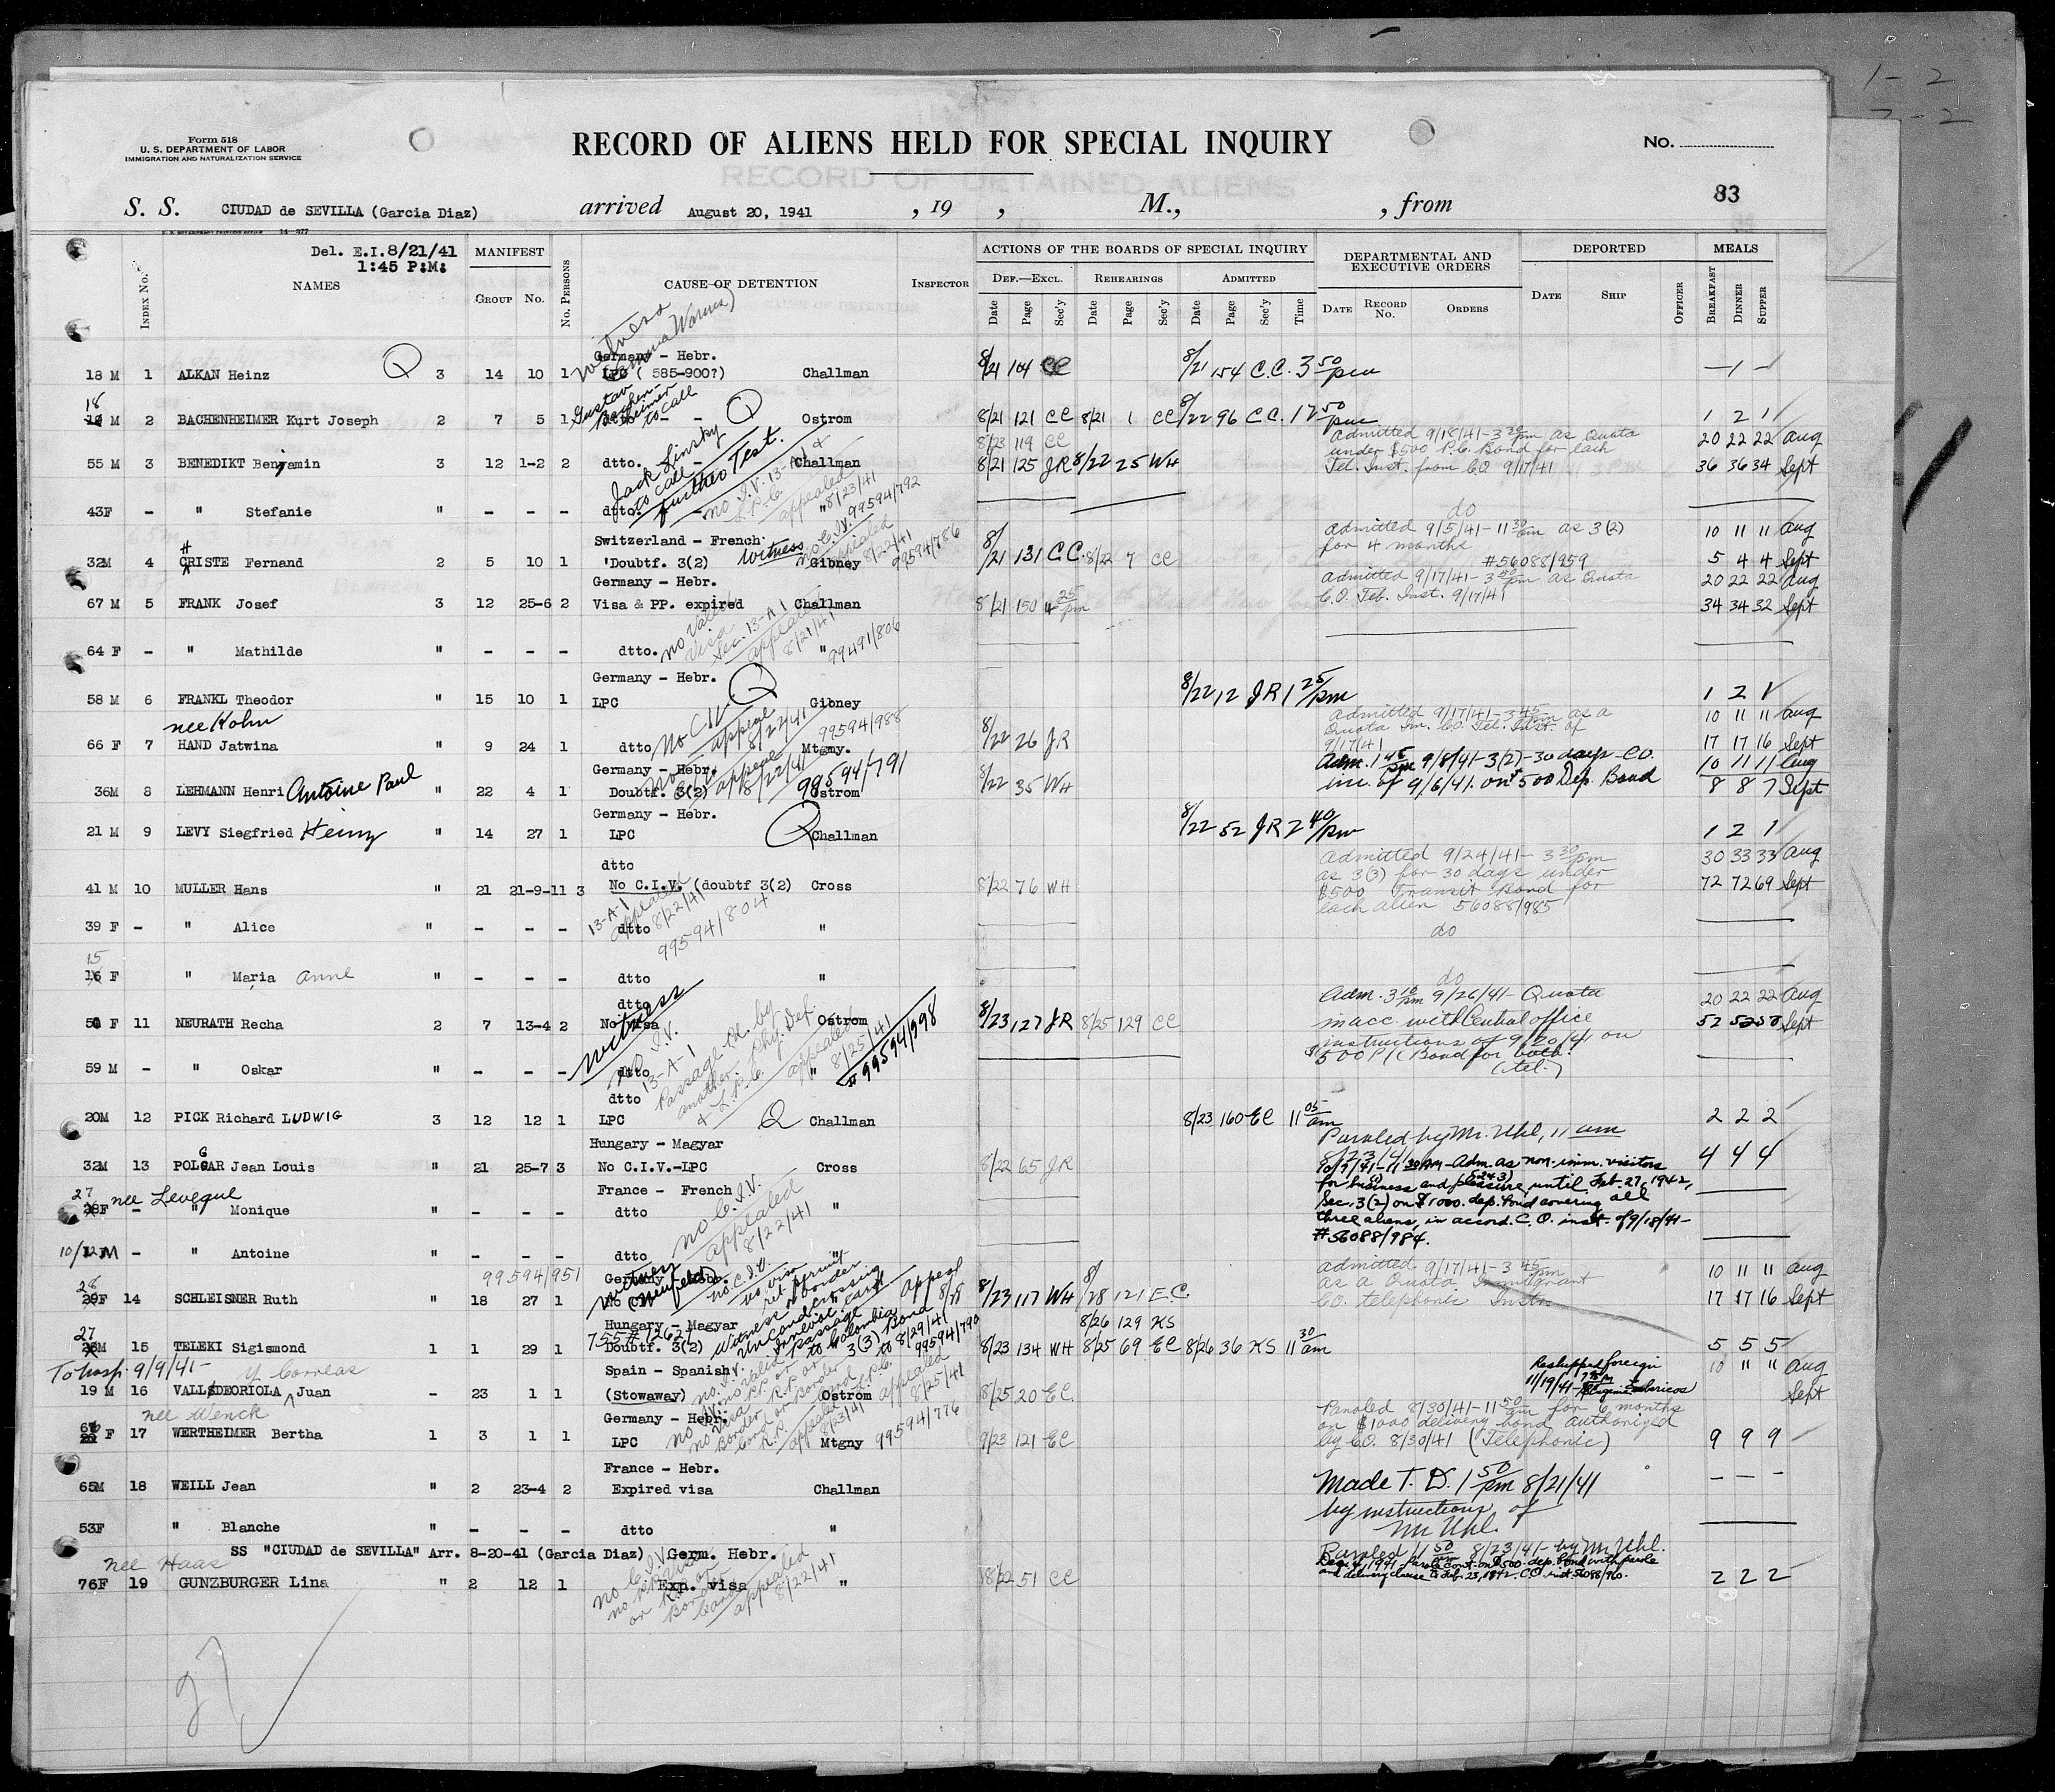 1-2
Form 518
U. S. DEPARTMENT OF LABOR
IMMIGRATION AND NATURALIZATION SERVICE
RECORD OF ALIENS HELD FOR SPECIAL INQUIRY
No.
RECORD OF DETAINED ALIENS
S. S. CIUDAD de SEVILLA (Garcia Diaz) arrived August 20, 1941 , 19 , M., , from 83
Del. E.I.8/21/41
1:45 P:M:
NAMES Index No. MANIFEST Group No. No. Persons CAUSE OF DETENTION Inspector
ACTIONS OF THE BOARDS OF SPECIAL INQUIRY
Def.—Excl. Rehearings Admitted
Date Page Sec'y Date Page Sec'y Date Page Sec'y Time
DEPARTMENTAL AND EXECUTIVE ORDERS
Date Record No. Orders
DEPORTED
Date Ship Officer
MEALS
Breakfast Dinner Supper
Witness
Germany - Hebr.
18 M 1 ALKAN Heinz Q 3 14 10 1 LPC ( 585-900?) Challman 8/21 104 CC 8/21 154 C.C. 3 50 pm - 1 -
Gustav Bachenheimer to call
18
19 M 2 BACHENHEIMER Kurt Joseph 2 7 5 1 - - Q Ostrom 8/21 121 CC 8/21 1 CC 8/22 96 CC. 12 50 pm 1 2 1
8/23 119 CC
Admitted 9/18/41-3 30 pm as Quota 20 22 22 Aug
under $500 P.C. Bond for each
55 M 3 BENEDIKT Benjamin 3 12 1-2 2 dtto. Challman 8/21 125 JR 8/22 25 WH Tel. Inst. from C.O 9/17/41 36 36 34 Sept
Jack Linsky to call
further Test.
no I.V. 13-A-1 &
L.P.C.
appealed 8/23/41
99594/792
43F - " Stefanie " - - - dtto. " do
Switzerland - French
admitted 9/5/41-11 30 am as 3(2) 10 11 11 Aug
for 4 months
32M 4 CHRISTE Fernand 2 5 10 1 'Doubtf. 3(2) Witness Gibney 8/21 131 C.C. 8/22 7 CC #56088/959 5 4 4 Sept
no C.I.V.
appealed 8/22/41
99594/786
Germany - Hebr.
admitted 9/17/41-3 30 pm as Quota 20 22 22 Aug
67 M 5 FRANK Josef 3 12 25-6 2 Visa & PP. expired Challman 8/21 150 4 25 pm C.O. Tel. Inst. 9/17/41 34 34 32 Sept
no valid visa
Sec. 13-A-1
appealed 8/21/41
99491/806
64 F - " Mathilde " - - - dtto. "
Germany - Hebr.
58 M 6 FRANKL Theodor " 15 10 1 LPC Q Gibney 8/22 12 JR 1 25 pm 1 2 1
nee Kohn
Admitted 9/17/41-3 45 pm as a 10 11 11 Aug
Quota Im. C.O. Tel. Inst. of
66 F 7 HAND Jatwina " 9 24 1 dtto Mtgmy. 8/22 26 JR 9/17/41 17 17 16 Sept
no C.I.V. appeal 8/22/41 99594/988
Germany - Hebr.
Adm. 1 45 pm 9/8/41-3(2)-30 days-C.O. 10 11 11 Aug
36M 8 LEHMANN Henri Antoine Paul " 22 4 1 Doubtf. 3(2) Ostrom 8/22 35 WH ins. of 9/6/41. on $500 Dep. Bond 8 8 7 Sept
appeal 8/22/41
99594/791
Germany - Hebr.
21 M 9 LEVY Siegfried Heinz " 14 27 1 LPC Q Challman 8/22 52 JR 2 40 pm 1 2 1
dtto
Admitted 9/24/41-3 30 pm 30 33 33 Aug
as 3(3) for 30 days under
41 M 10 MULLER Hans " 21 21-9-11 3 No C.I.V. (doubtf 3(2) Cross 8/22 76 WH $500 Transit Bond for 72 72 69 Sept
each alien 56088/985
13-A-1
appealed 8/22/41
99594/804
39 F - " Alice " - - - dtto " do
15
16 F " Maria Anne " - - - dtto " do
dtto
Adm. 3 10 pm 9/26/41-Quota 20 22 22 Aug
F 11 NEURATH Recha 2 7 13-4 2 No visa Ostrom 8/23 127 JR 8/25 129 CC in acc. with Central office 52 52 50 Sept
instructions of 9/20/41 on
$500 P/C Bond for both.
(tel.)
Witness
no I.V.
13-A-1
Passage pd. by another.
Phy. Def.
& L.P.C.
appealed 8/25/41
#99594/998
59 M - " Oskar " - - - dtto "
dtto
20M 12 PICK Richard LUDWIG 3 12 12 1 LPC Q Challman 8/23 160 EC 11 05 am 2 2 2
Hungary - Magyar
Paroled by Mr. Uhl, 11 am
8/23/41
32M 13 POLGAR Jean Louis " 21 25-7 3 No C.I.V.-LPC Cross 8/22 65 JR 4 4 4
10/7/41-11 30 AM-Adm. as non-imm. visitors
for business and pleasure, until Feb. 27, 1942,
Sec. 3(2) on $1000. dep. bond covering all
three aliens, in accord. C.O. inst. of 9/18/41-
#56088/984.
France - French
27 nee Leveque
28F - " Monique " - - - dtto "
no C.I.V.
appealed 8/22/41
10/12 M - " Antoine " - - - dtto "
99594/951 Germany - Hebr.
admitted 9/17/41-3 45 pm 10 11 11 Aug
as a Quota Immigrant
28
29F 14 SCHLEISNER Ruth " 18 27 1 8/23 117 WH 8/28 121 E.C. C.O. telephonic Instr. 17 17 16 Sept
Hungary - Magyar 8/26 129 KS
755#12627
27
28M 15 TELEKI Sigismond 1 1 29 1 Doubtf. 3(2) 8/23 134 WH 8/25 69 EC 8/26 36 KS 11 30 am 5 5 5
To hosp. 9/9/41- y Correas
Spain - Spanish
Reshipped foreign 10 " " Aug
19 M 16 VALLSDEORIOLA Juan - 23 1 1 (Stowaway) Ostrom 8/25 20 EC. 11/19/41- Sept
nee Wenck
Germany - Hebr.
Paroled 8/30/41-11 50 am for 6 months
on $1000 delivery bond authorized
F 17 WERTHEIMER Bertha 1 3 1 1 LPC Mtgny 9/23 121 EC by C.O. 8/30/41 (Telephonic) 9 9 9
appealed 8/25/41
99594/776
France - Hebr.
65M 18 WEILL Jean " 2 23-4 2 Expired visa Challman Made T.D. 1 50 pm 8/21/41 - - -
by instructions of
Mr Uhl.
53F " Blanche " - - - dtto "
SS "CIUDAD de SEVILLA" Arr. 8-20-41 (Garcia Diaz) Germ. Hebr.
nee Haas
Paroled 11 50 am 8/23/41-by Mr Uhl.
Dec. 4, 1941-Parole cont. on $500. dep. bond with parole
and delivery clause to Feb. 23, 1942. C.O. inst. 56088/960.
76F 19 GUNZBURGER Lina " 2 12 1 Exp. visa " 8/22 51 CC 2 2 2
no C.I.V.
appealed 8/22/41
27